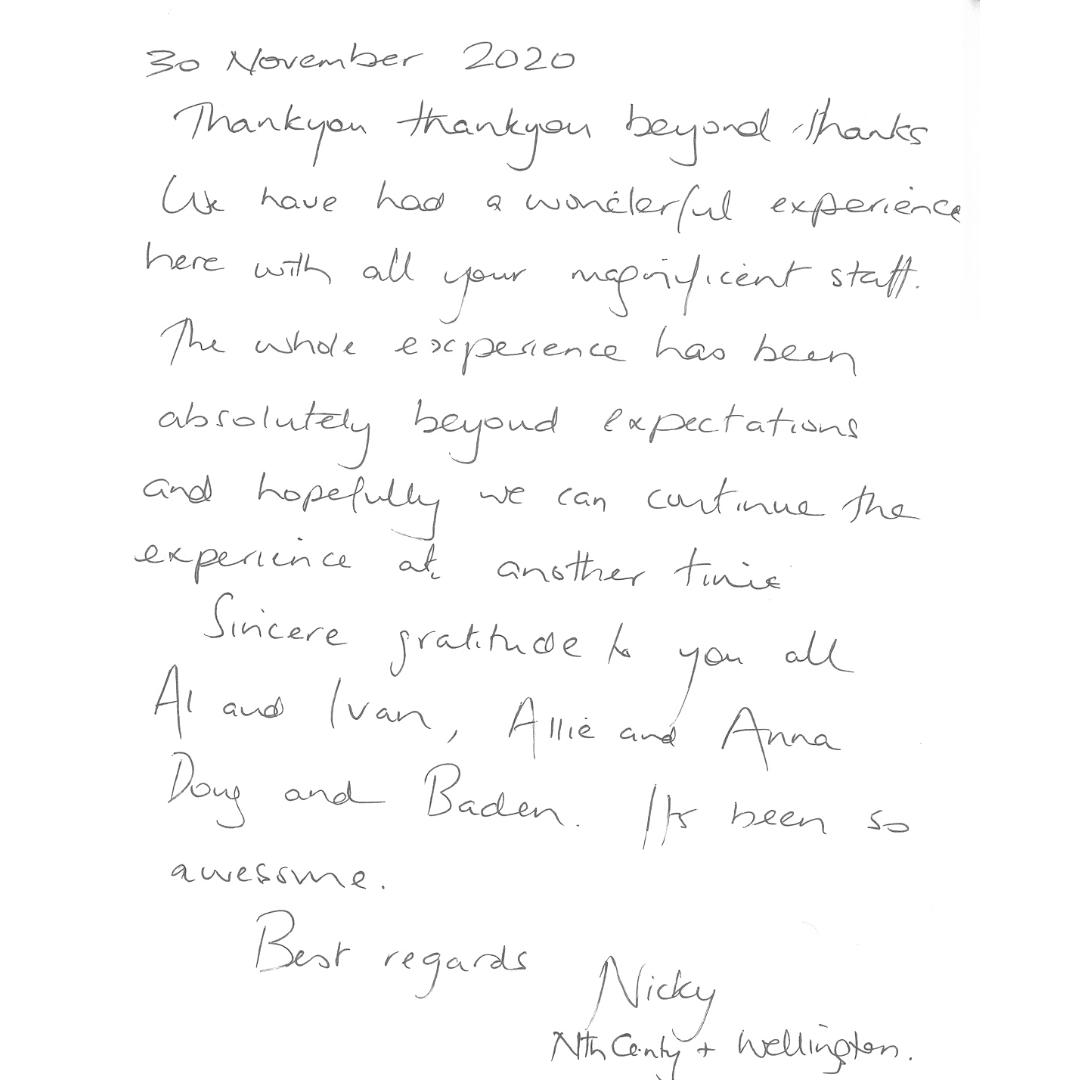 30 November 2020
Thankyou thankyou beyond thanks
We have had a wonderful experience
here with all your magnificent staff.
The whole experience has been
absolutely beyond expectations
and hopefully we can continue the
experience at another time
Sincere gratitude to you all
Al and Ivan, Allie and Anna
Doug and Baden. Its been so
awesome.
Best regards
Nicky
Nth Canty + Wellington.